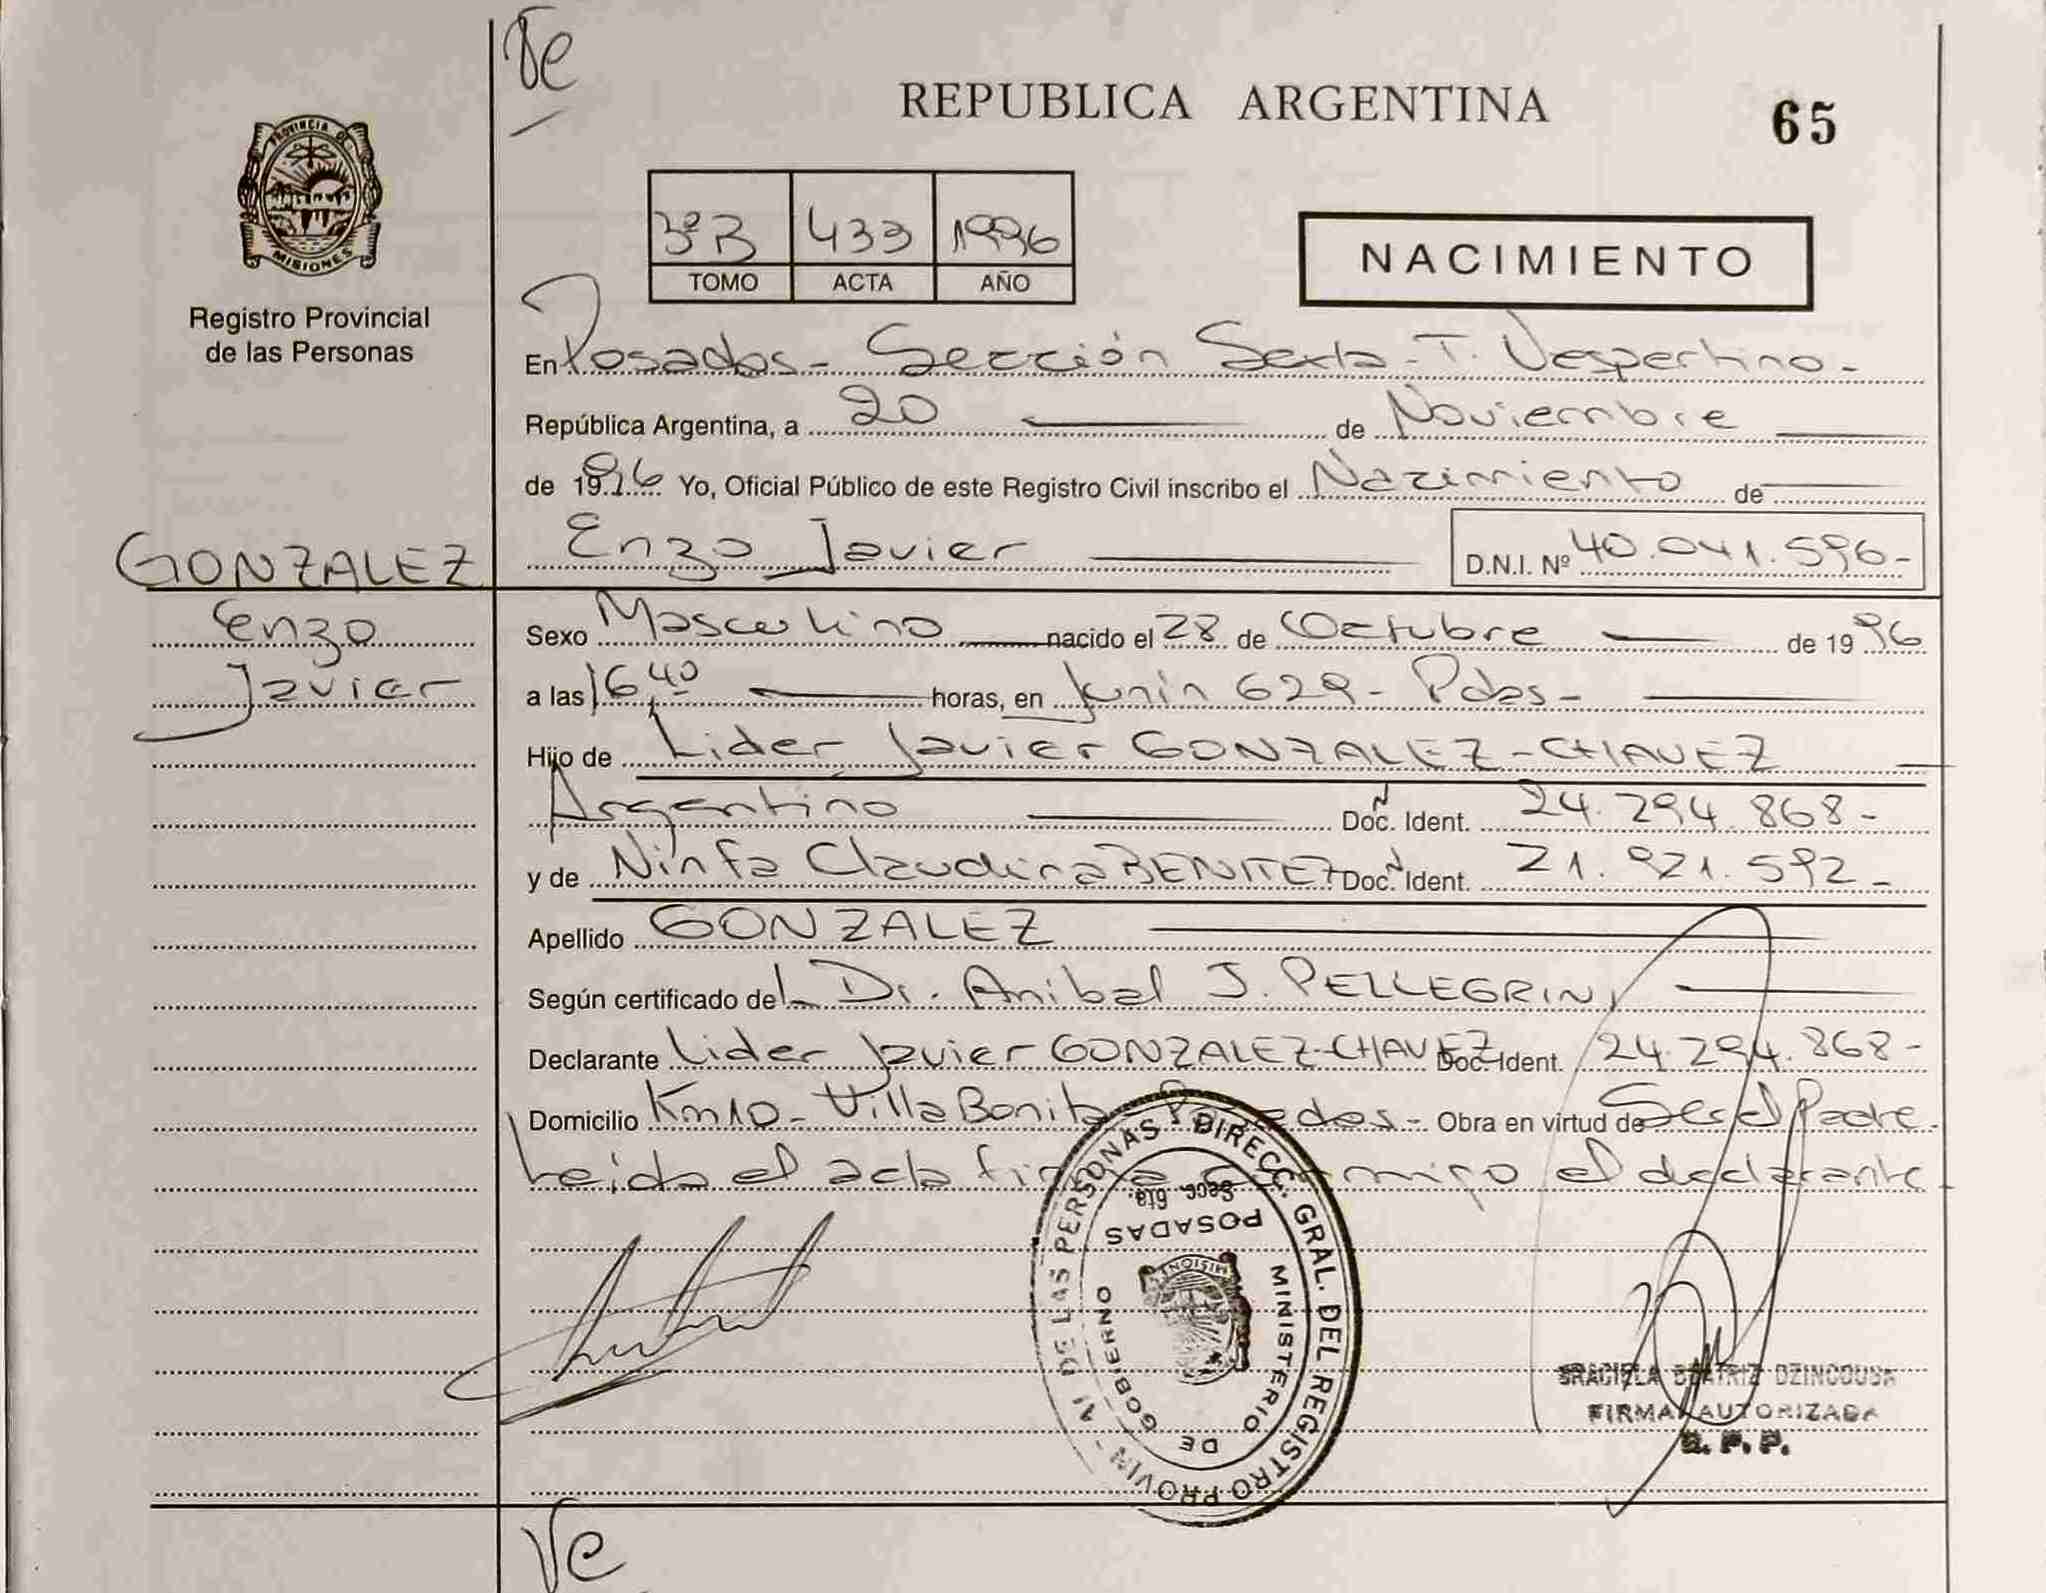 Ve
REPUBLICA ARGENTINA
65
PROVINCIA DE
MISIONES
Registro Provincial
de las Personas
3ºB 433 1996
TOMO ACTA AÑO
NACIMIENTO
En Posadas - Sección Sexta - T. Vespertino -
República Argentina, a 20 de Noviembre
de 1996 Yo, Oficial Público de este Registro Civil inscribo el Nacimiento de
GONZALEZ
Enzo Javier
Enzo Javier D.N.I. Nº 40.041.596-
Sexo Masculino nacido el 28 de Octubre de 1996
a las 16,40 horas, en Junin 629 - Pdas -
Hijo de Lider Javier GONZALEZ-CHAVEZ
Argentino Doc. Ident. 24.294.868-
y de Ninfa Claudina BENITEZ Doc. Ident. 21.921.592-
Apellido GONZALEZ
Según certificado del Dr. Anibal J. PELLEGRINI
Declarante Lider Javier GONZALEZ-CHAVEZ Doc. Ident. 24.294.868-
Domicilio Km10 - Villa Bonita - Posadas - Obra en virtud de Ser el Padre -
Leida el acta firma conmigo el declarante
DIRECC. GRAL. DEL REGISTRO PROVIN- AL DE LAS PERSONAS
MINISTERIO DE GOBIERNO
Secc. 6ta.
POSADAS
MISIONES
GRACIELA BEATRIZ DZINCOUSA
FIRMA AUTORIZADA
R. P. P.
Ve